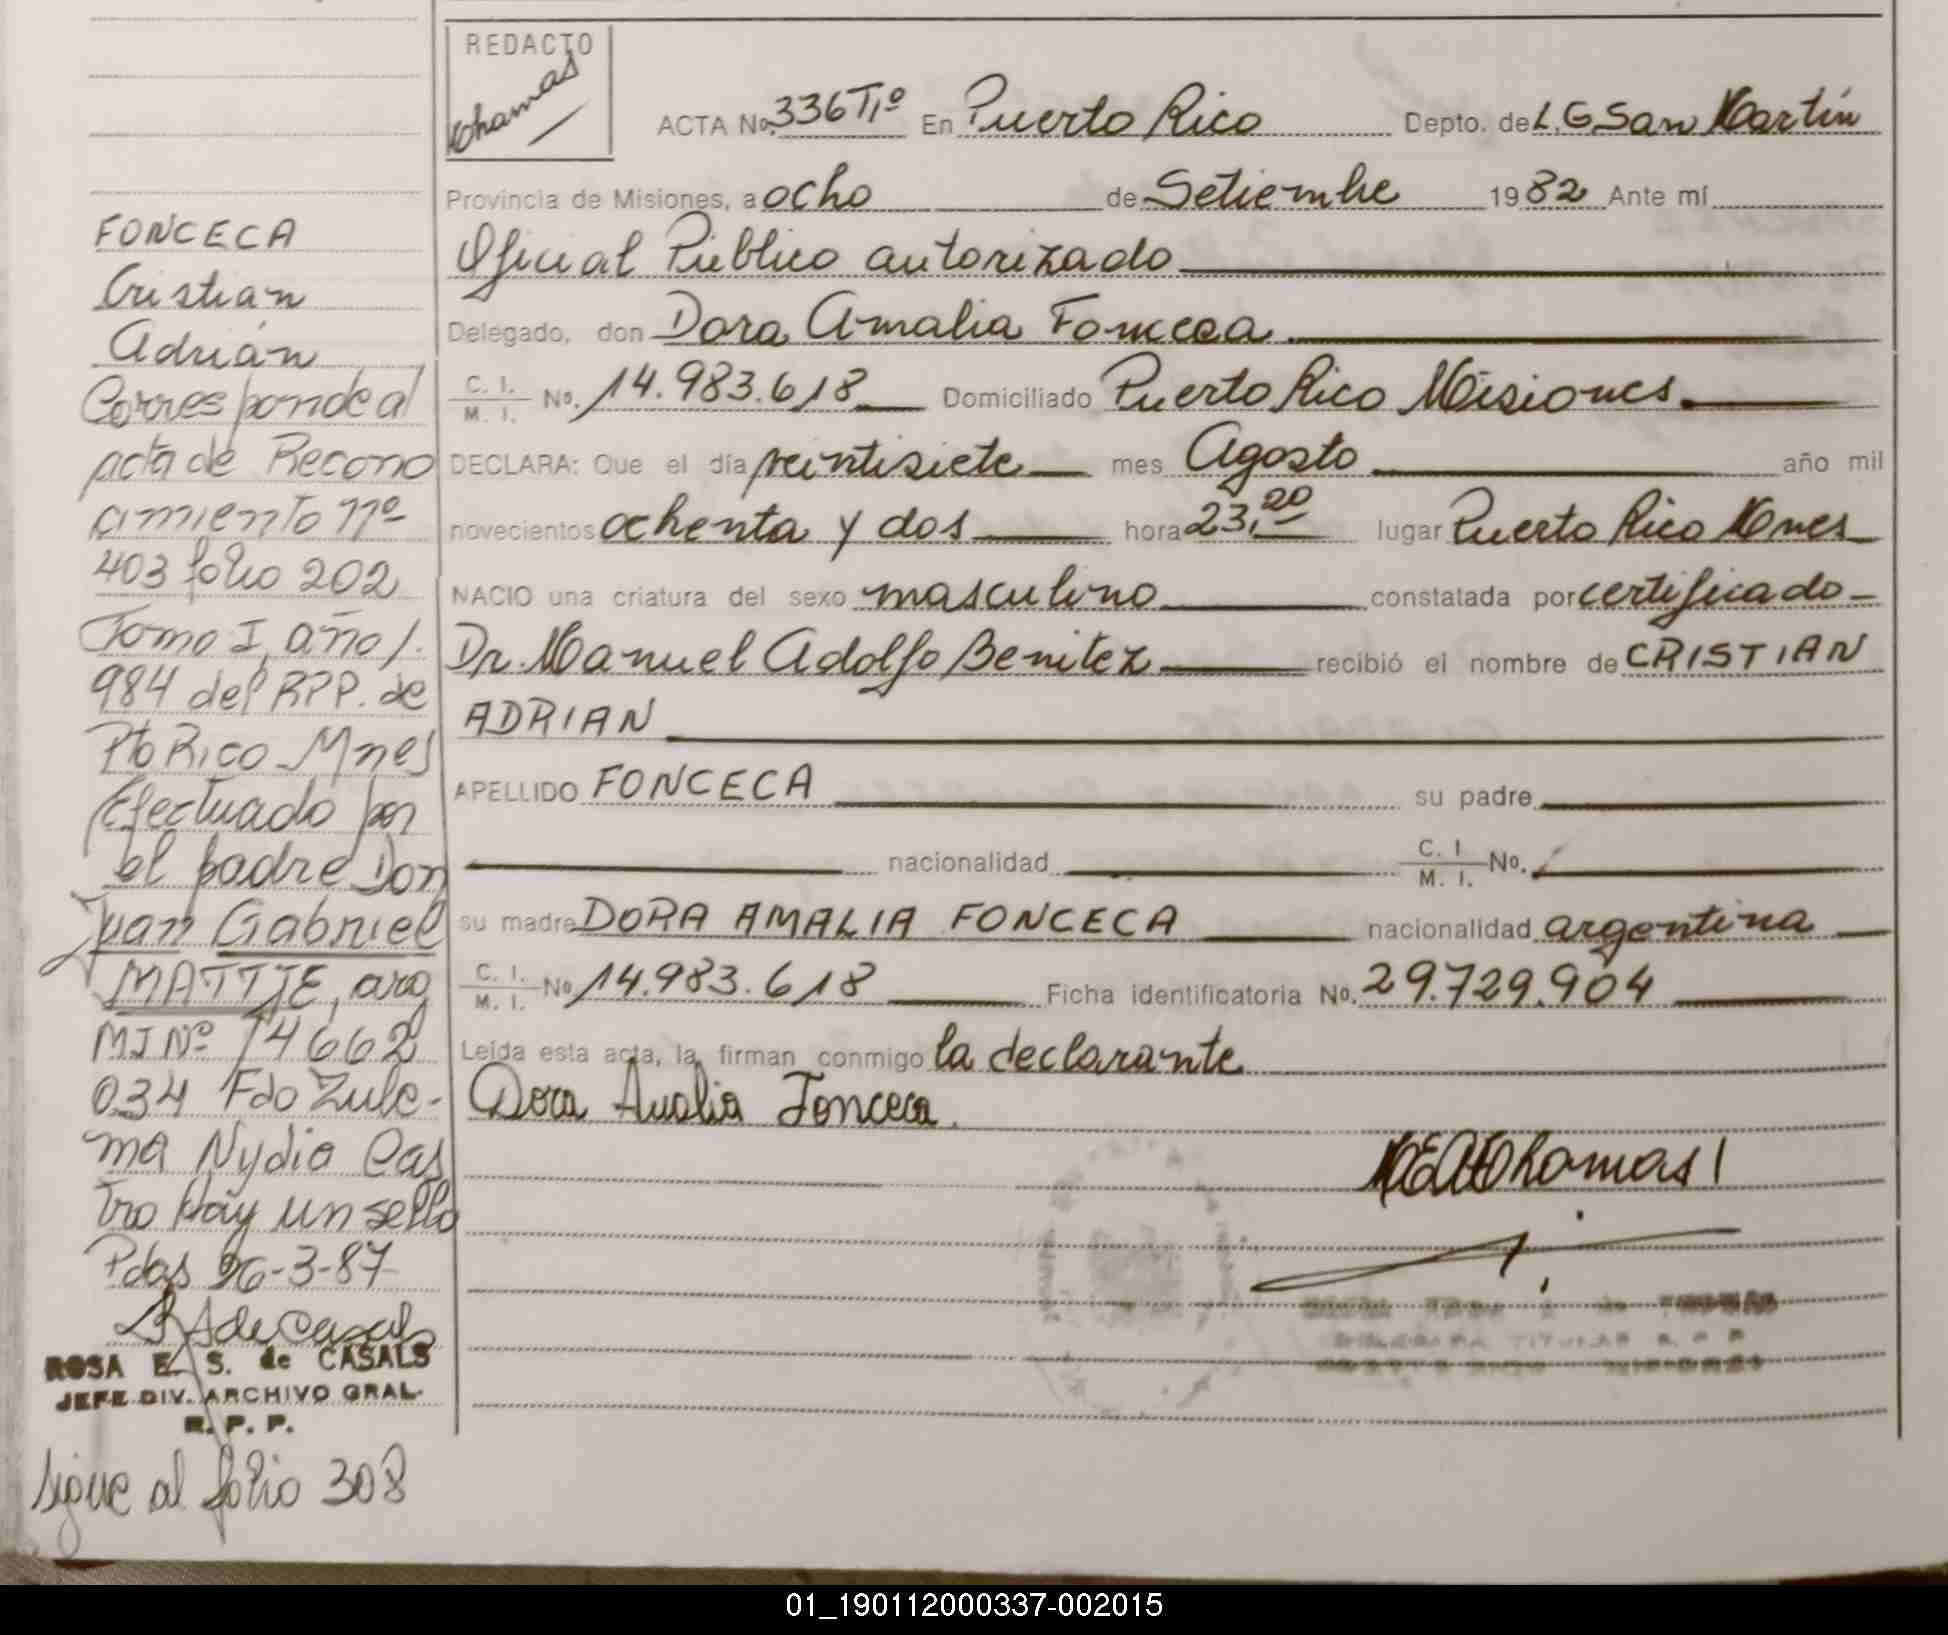 REDACTO
Thomas
ACTA No. 336 Tº1º En Puerto Rico Depto. de L.G.San Martín
Provincia de Misiones, a ocho de Setiembre 1982 Ante mí
Oficial Público autorizado
Delegado, don Dora Amalia Fonceca
C. I. / M. I. No. 14.983.618 Domiciliado Puerto Rico Misiones.
DECLARA: Que el día veintisiete mes Agosto año mil
novecientos ochenta y dos hora 23,20 lugar Puerto Rico Mnes
NACIO una criatura del sexo masculino constatada por certificado
Dr. Manuel Adolfo Benitez recibió el nombre de CRISTIAN
ADRIAN
APELLIDO FONCECA su padre
nacionalidad C. I. / M. I. No.
su madre DORA AMALIA FONCECA nacionalidad argentina
C. I. / M. I. No. 14.983.618 Ficha identificatoria No. 29.729.904
Leída esta acta, la firman conmigo la declarante
Dora Amalia Fonceca.
FONCECA
Cristian
Adrián
Corresponde al
acta de Recono
cimiento nº
403 folio 202
Tomo I, año 1.
984 del RPP. de
Pto Rico Mnes
Efectuado por
el padre Don
Juan Gabriel
MATTJE, arg
MI Nº 14662
034 Fdo Zule-
ma Nydia Cas
tro Hay un sello
Pdas 26-3-87
ROSA E. S. de CASALS
JEFE DIV. ARCHIVO GRAL.
R. P. P.
Sigue al folio 308
01_190112000337-002015